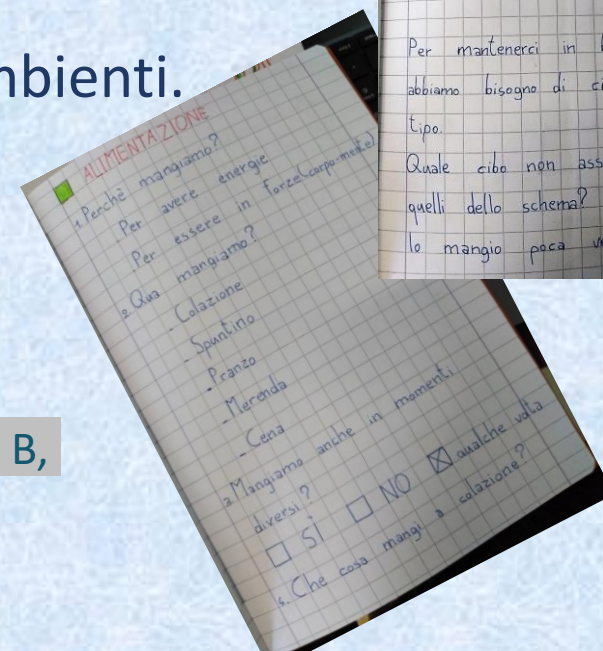 mbienti.
ALIMENTAZIONE
1. Perchè mangiamo?
Per avere energie
Per essere in forze(corpo-mente)
2. Qua mangiamo?
- Colazione
- Spuntino
- Pranzo
- Merenda
- Cena
3. Mangiamo anche in momenti
diversi?
SÌ NO qualche volta
4. Che cosa mangi a colazione?
Per mantenerci in
abbiamo bisogno di
tipo.
Quale cibo non ass
quelli dello schema?
Io mangio poca
B,